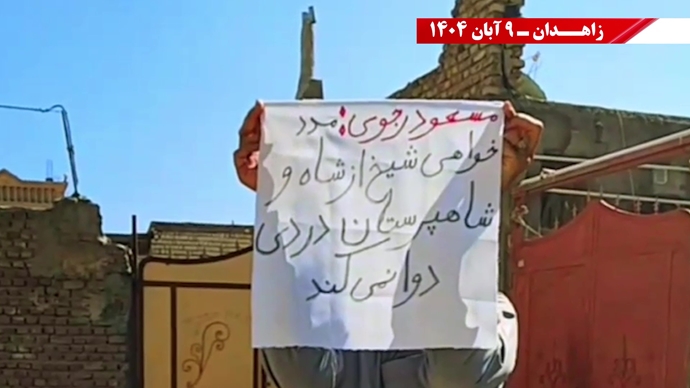 زاهـــدان ـ ۹ آبان ۱۴۰۴
مسعود رجوی: مدد
خواهی شیخ از شاه و
شاهپرستان دردی
دوا نمی کند